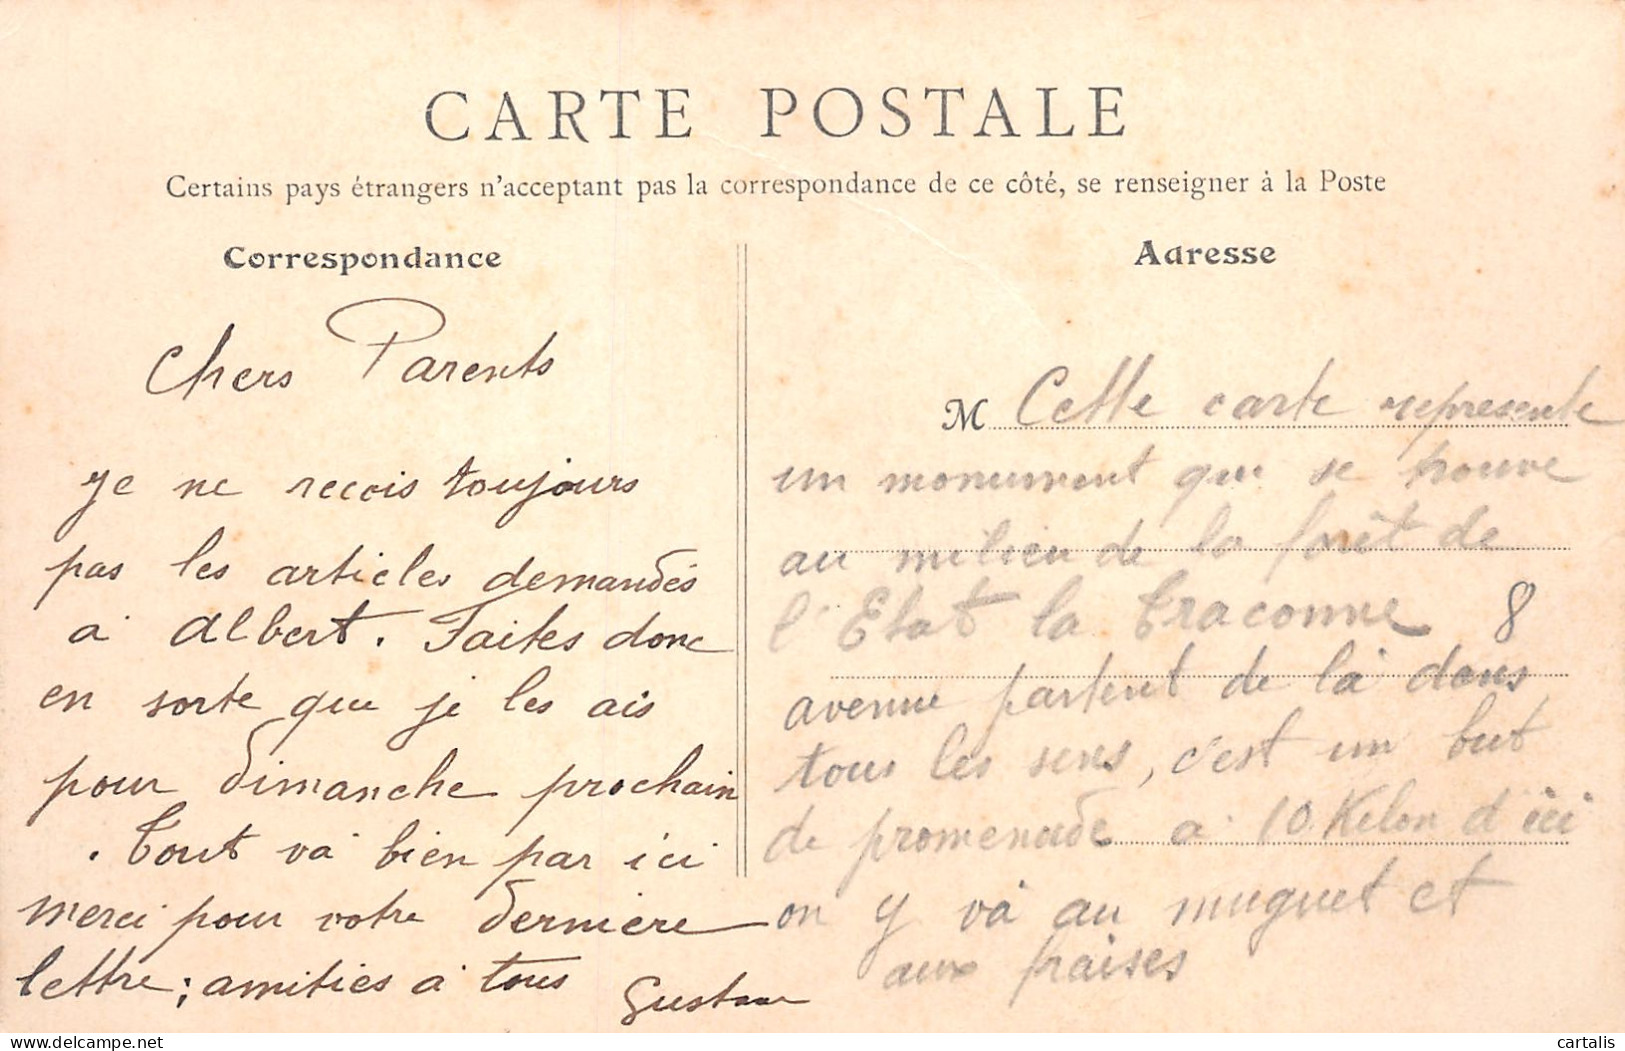 CARTE POSTALE
Certains pays étrangers n'acceptent pas la correspondance de ce côté, se renseigner à la Poste
Correspondance
Chers Parents
je ne recois toujours
pas les articles demandés
a Albert. Faites donc
en sorte que je les ais
pour dimanche prochain
. Tout va bien par ici
merci pour votre derniere
lettre ; amitiés a tous
Gustave
Adresse
M Cette carte represente
un monument que se trouve
au milieu de la forêt de
l'Etat la Traconne 8
avenue partent de là dans
tous les sens, c'est un but
de promenade a 10 Kilom d'ici
on y và au muguet et
aux fraises
cartalis